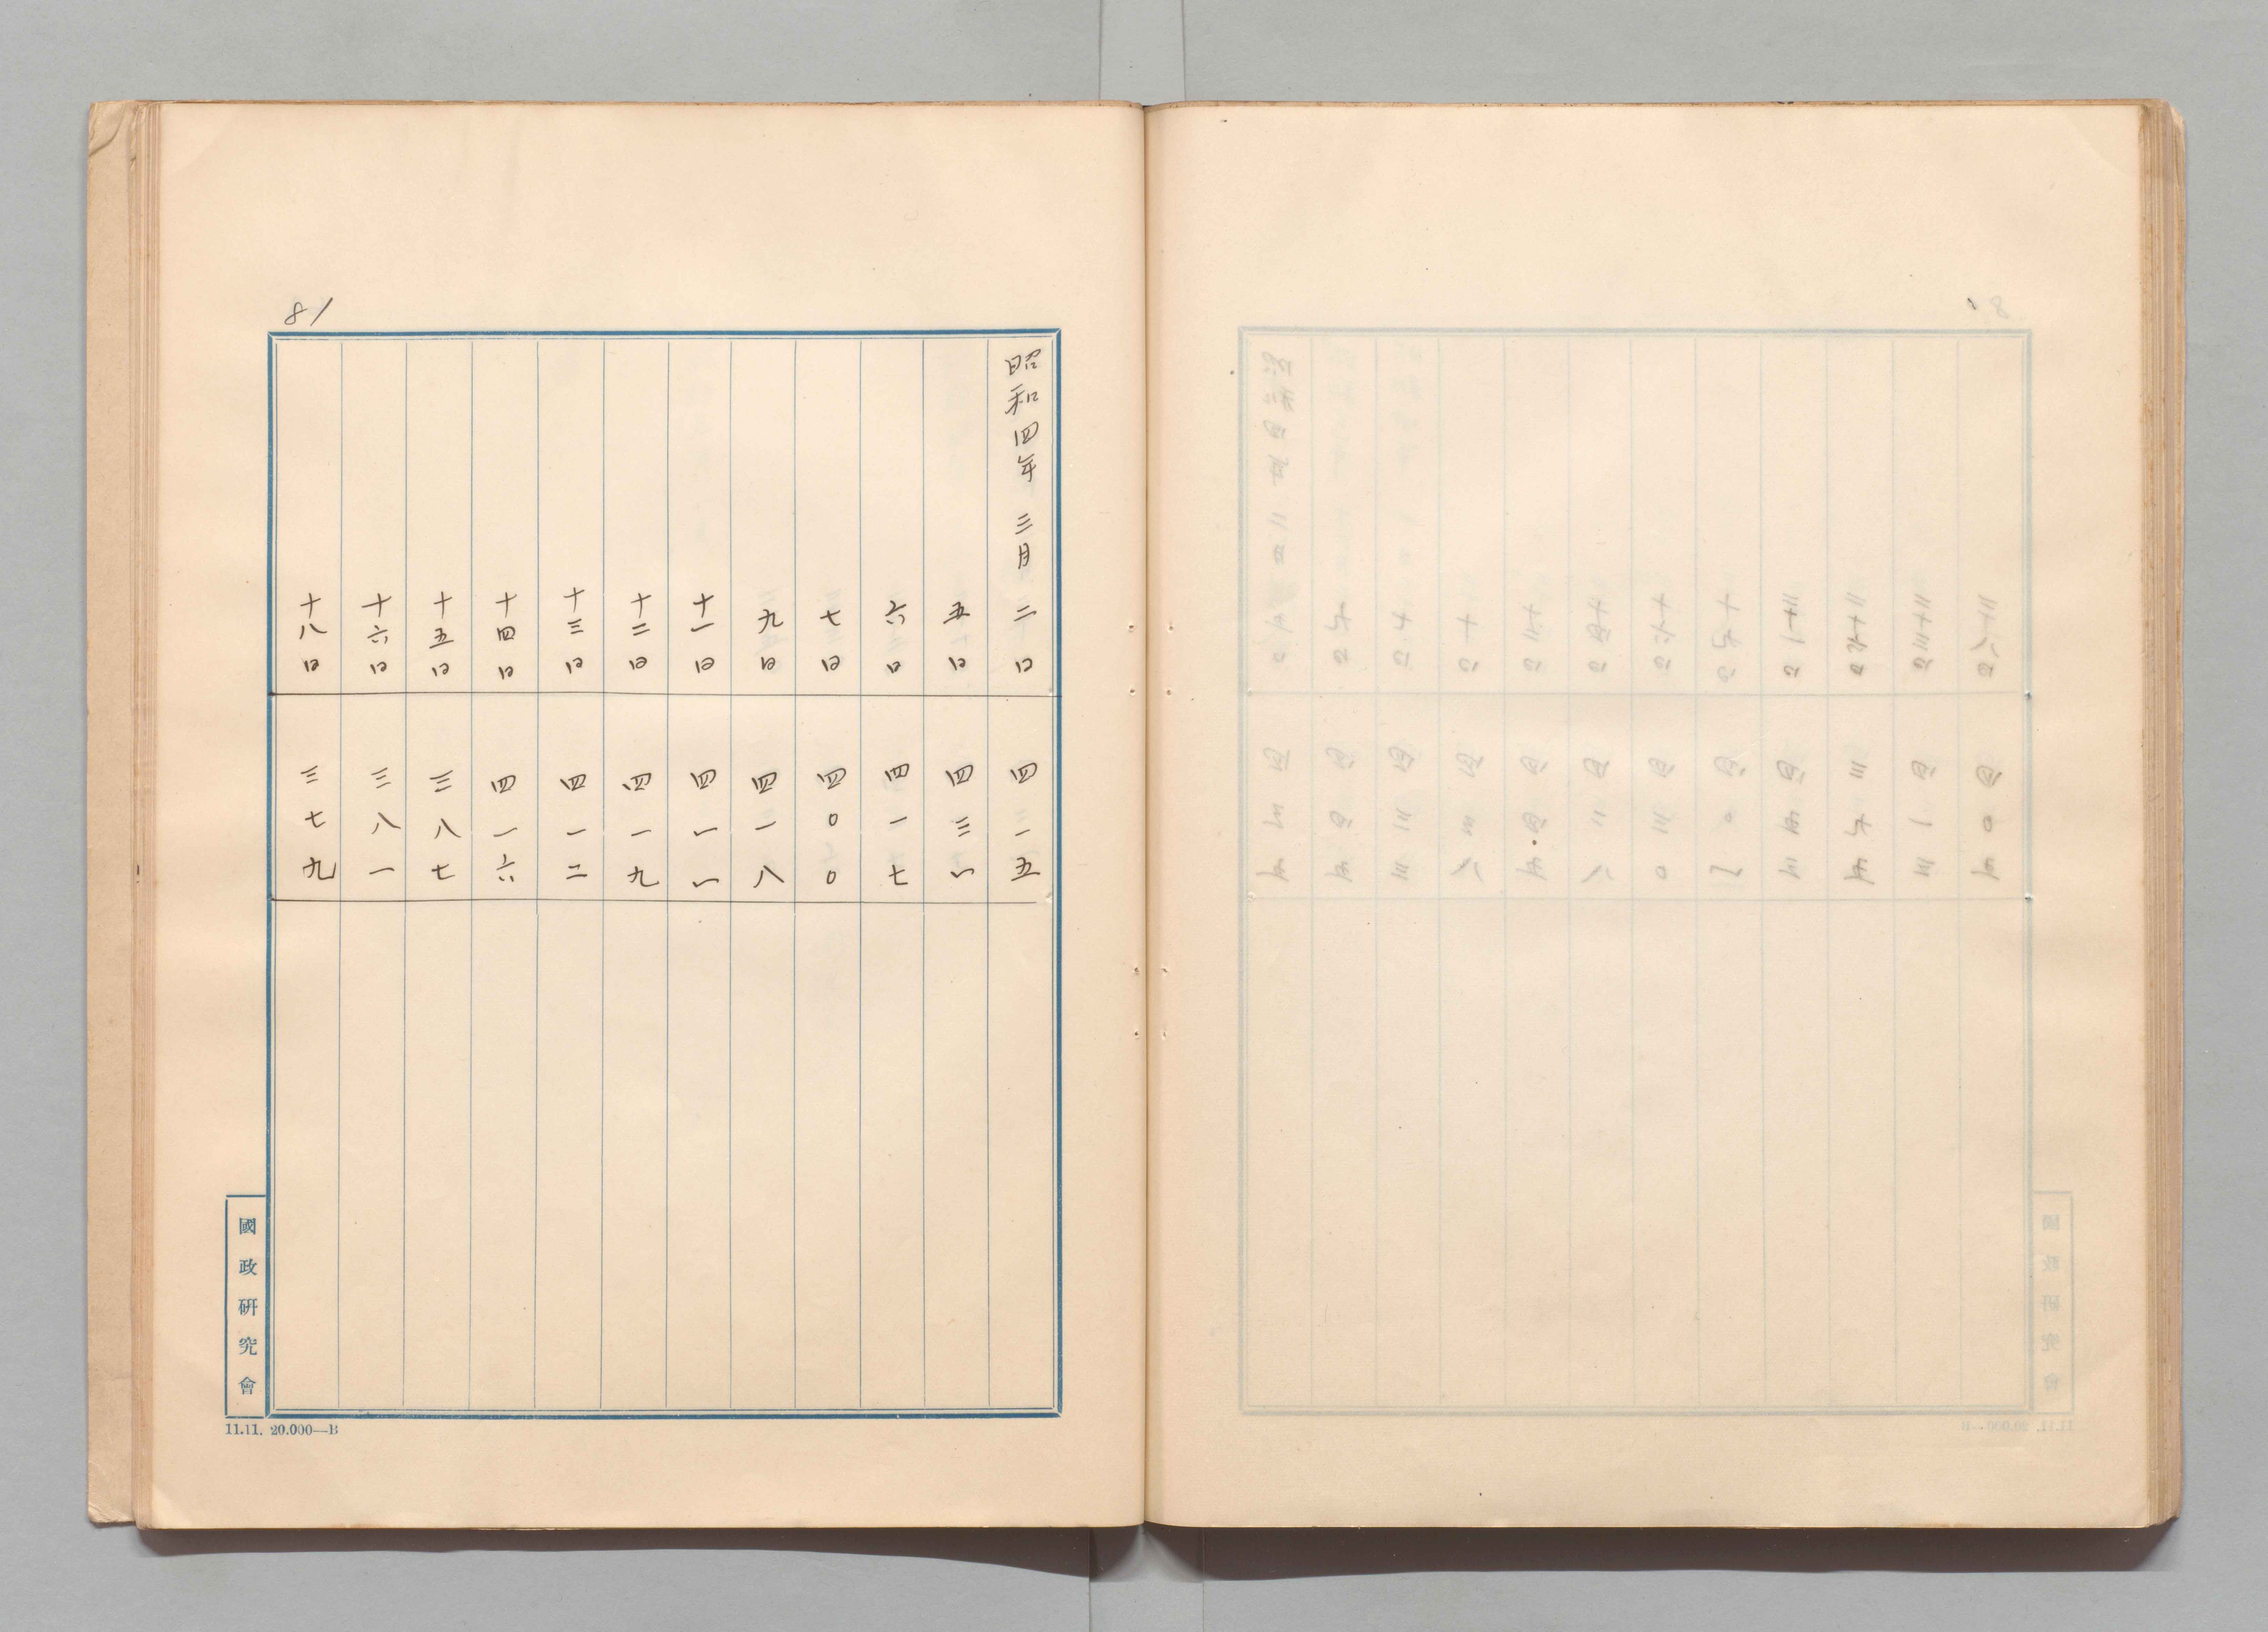 81
昭和四年 三月 二日 四一五
五日 四三一
六日 四一七
七日 四〇〇
九日 四一八
十一日 四一一
十二日 四一九
十三日 四一二
十四日 四一六
十五日 三八七
十六日 三八一
十八日 三七九
國政研究會
11.11. 20.000—B